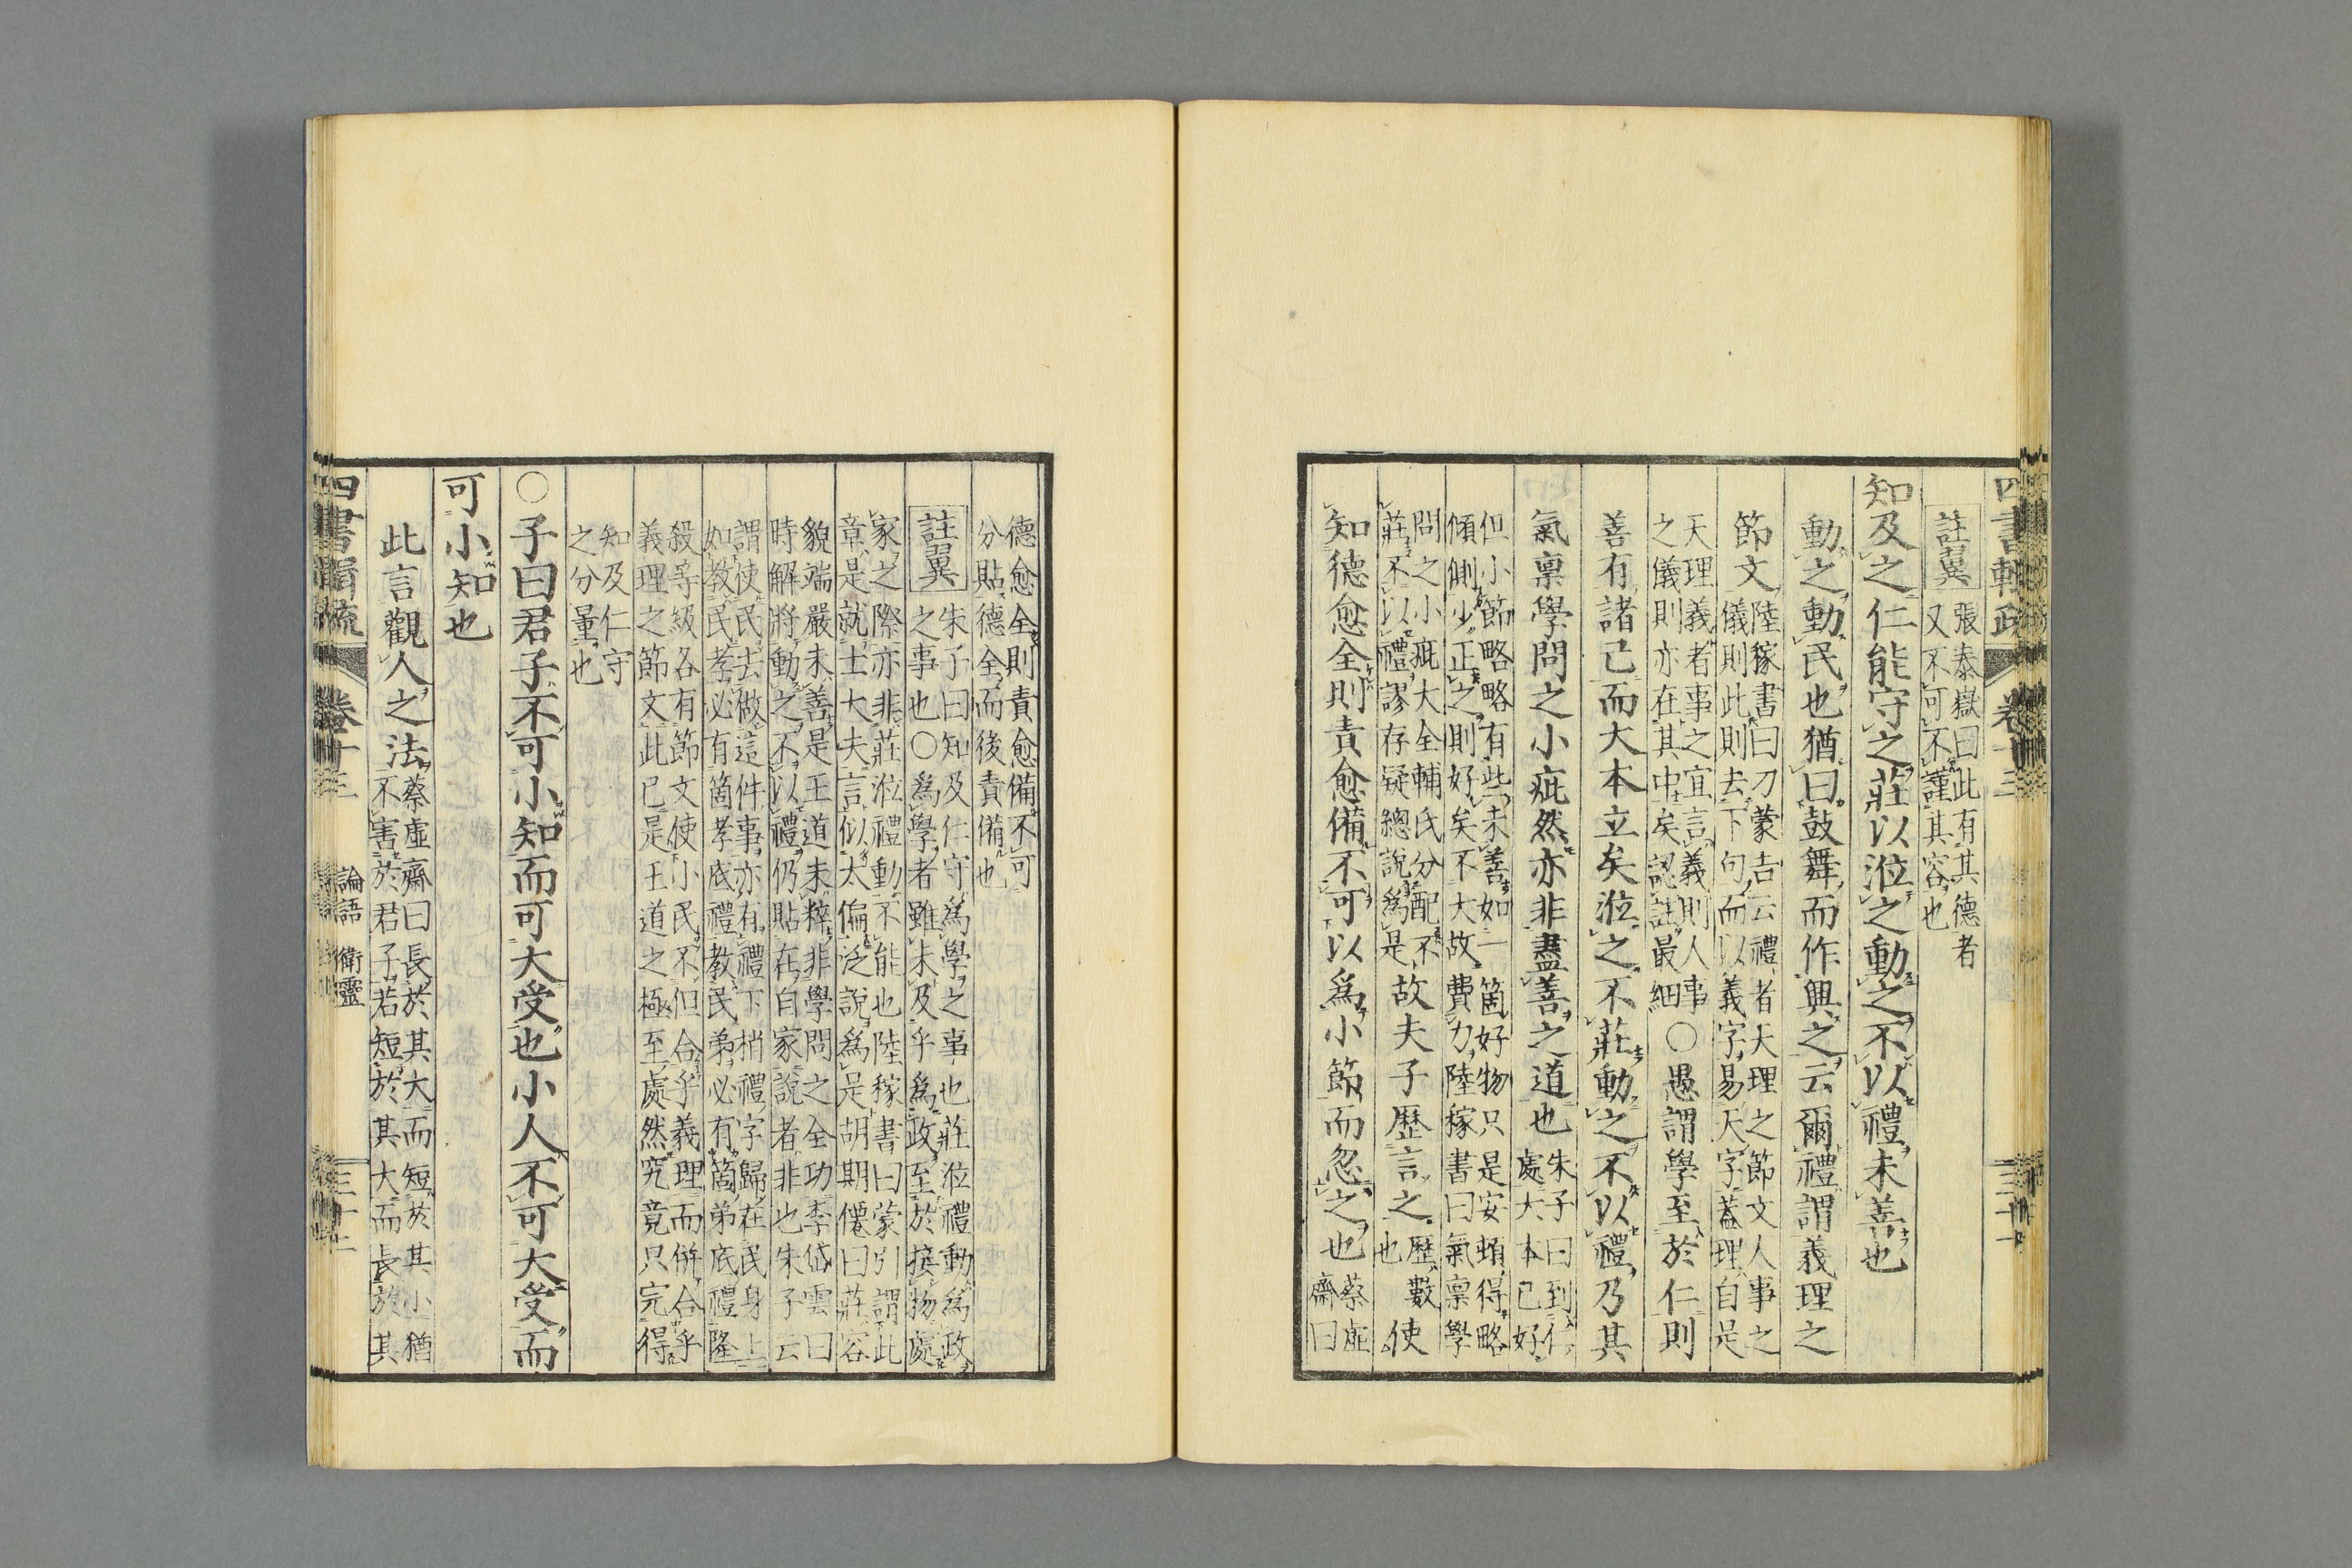 註翼 張泰嶽曰此有其德者
又不可不謹其容也
知及之仁能守之莊以涖之動之不以禮未善也
動之動民也猶曰鼓舞而作興之云爾禮謂義理之
節文 陸稼書曰刁蒙吉云禮者天理之節文人事之
儀則此則去下句而以義字易天字蓋理自是
天理義者事之宜言義則人事
之儀則亦在其中矣認註最細
〇愚謂學至於仁則
善有諸己而大本立矣涖之不莊動之不以禮乃其
氣稟學問之小疵然亦非盡善之道也 朱子曰到仁
處大本已好
但小節略略有些未善如一箇好物只是安頓得略
傾側少正之則好矣不大故費力陸稼書曰氣稟學
問之小疵大全輔氏分配不
莊不以禮謬存疑總說爲是
故夫子歷言之 歷數
也
使
知德愈全則責愈備不可以爲小節而忽之也 蔡虛
齋曰
德愈全則責愈備不可
分貼德全而後責備也
註翼 朱子曰知及仁守爲學之事也莊涖禮動爲政
之事也〇爲學者雖未及乎爲政至於接物處
家之際亦非莊涖禮動不能也陸稼書曰蒙引謂此
章是就士大夫言似太偏泛說爲是胡期僊曰莊容
貌端嚴未善是王道未粹非學問之全功李岱雲曰
時解將動之不以禮仍貼在自家說者非也朱子云
謂使民去做這件事亦有禮下梢禮字歸在民身上
如教民孝必有箇孝底禮教民弟必有箇弟底禮隆
殺等級各有節文使小民不但合乎義理而併合乎
義理之節文此已是王道之極至處然究竟只完得
知及仁守
之分量也
〇子曰君子不可小知而可大受也小人不可大受而
可小知也
此言觀人之法 蔡虛齋曰長於其大而短於其小猶
不害於君子若短於其大而長於其
四書輯疏 卷十三 論語 衛靈